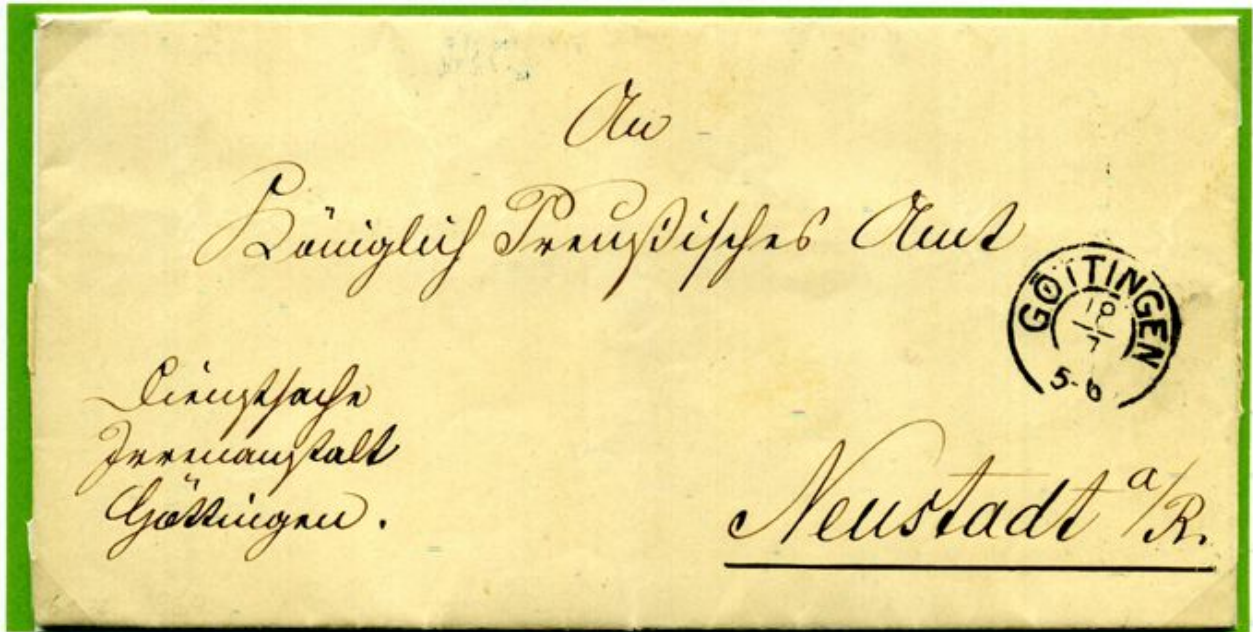 An
Königlich Preußisches Amt
GÖTTINGEN
10
7
5-6
Dienstsache
Irrenanstalt
Göttingen.
Neustadt a/R.